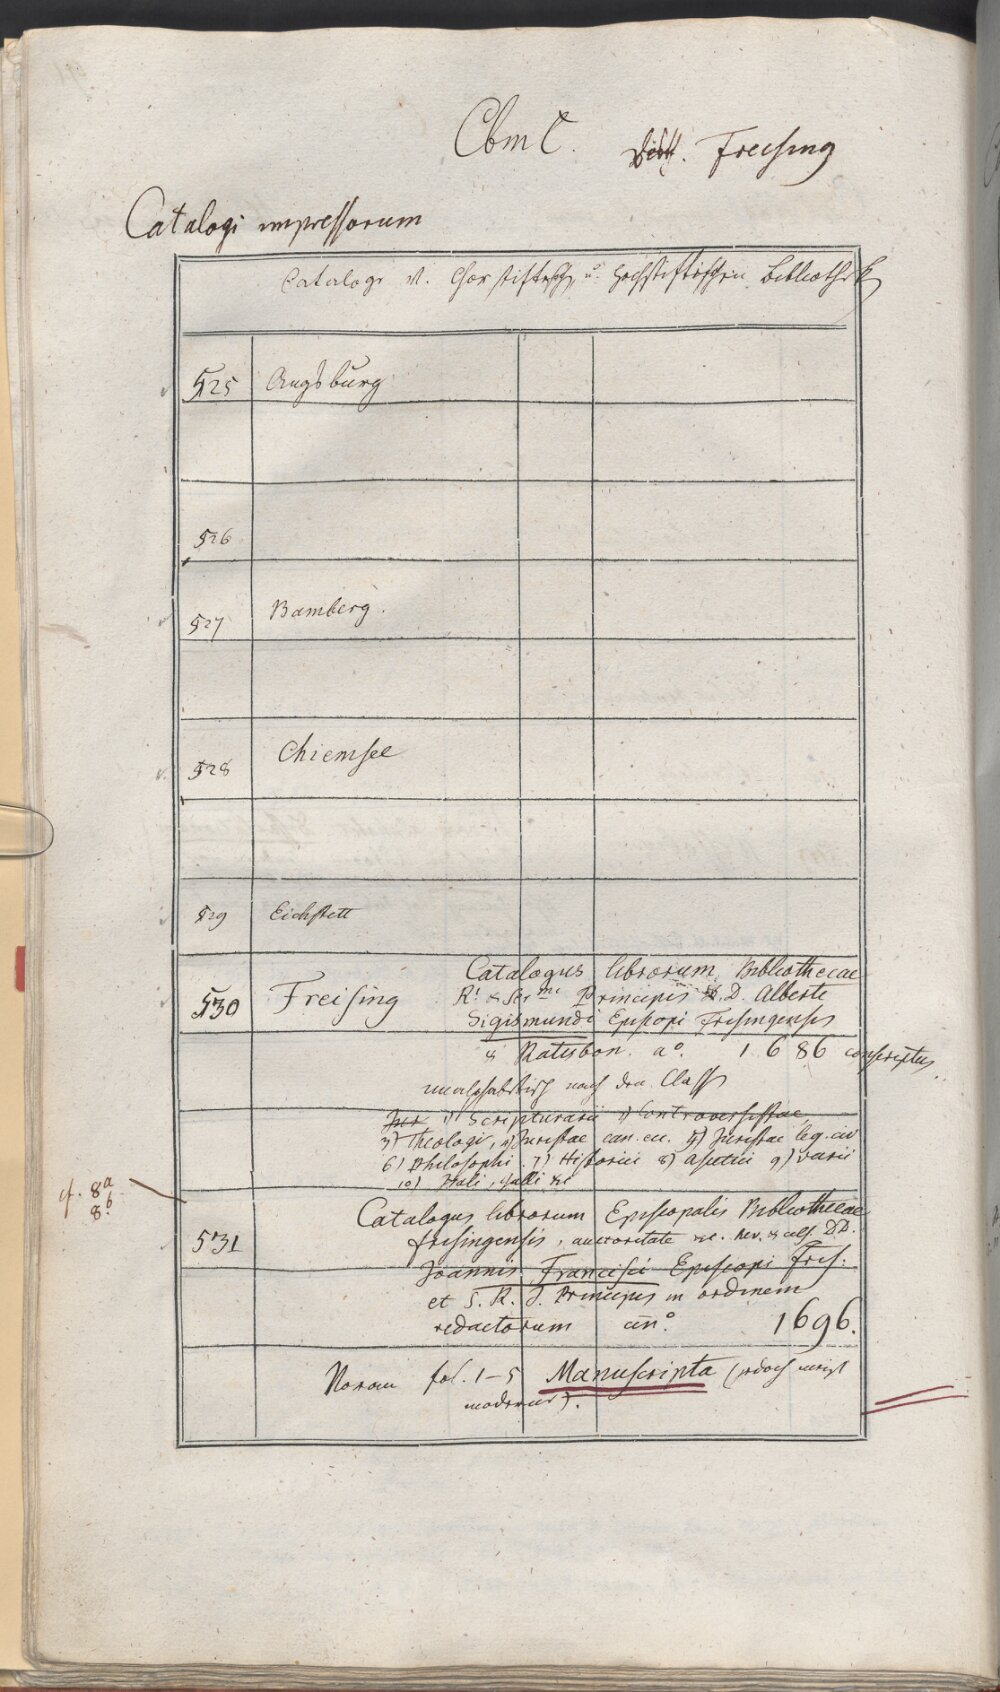 Cbm C. Freising
Catalogi impressorum
Catalogi v. Chorstiftisch u. hochstiftischen Bibliothek
525 Augsburg
526
527 Bamberg.
528 Chiemsee
529 Eichstett
530 Freising Catalogus librorum Bibliothecae
R.i & Ser.mi Principis D. Alberti
Sigismundi Episcopi Frisingensis
& Ratisbon. a.o 1686 conscriptus
nach den Class
1) Scripturarii 2) Controversistae,
3) Theologi, 4) Juristae can. ecc. 5) Juristae leg. civ
6) Philosophi 7) Historici 8) Ascetici 9) varii
10) Itali, Galli &c
cf. 8a
8b
Catalogus librorum Episcopalis Bibliothecae
531 frisingensis, auctoritate &c. Rev. & cels. DD.
Joannis Francisci Episcopi Fris.
et S. R. I. Principis in ordinem
redactorum an.o 1696.
Voran fol. 1-5 Manuscripta (jedoch meist
moderne).